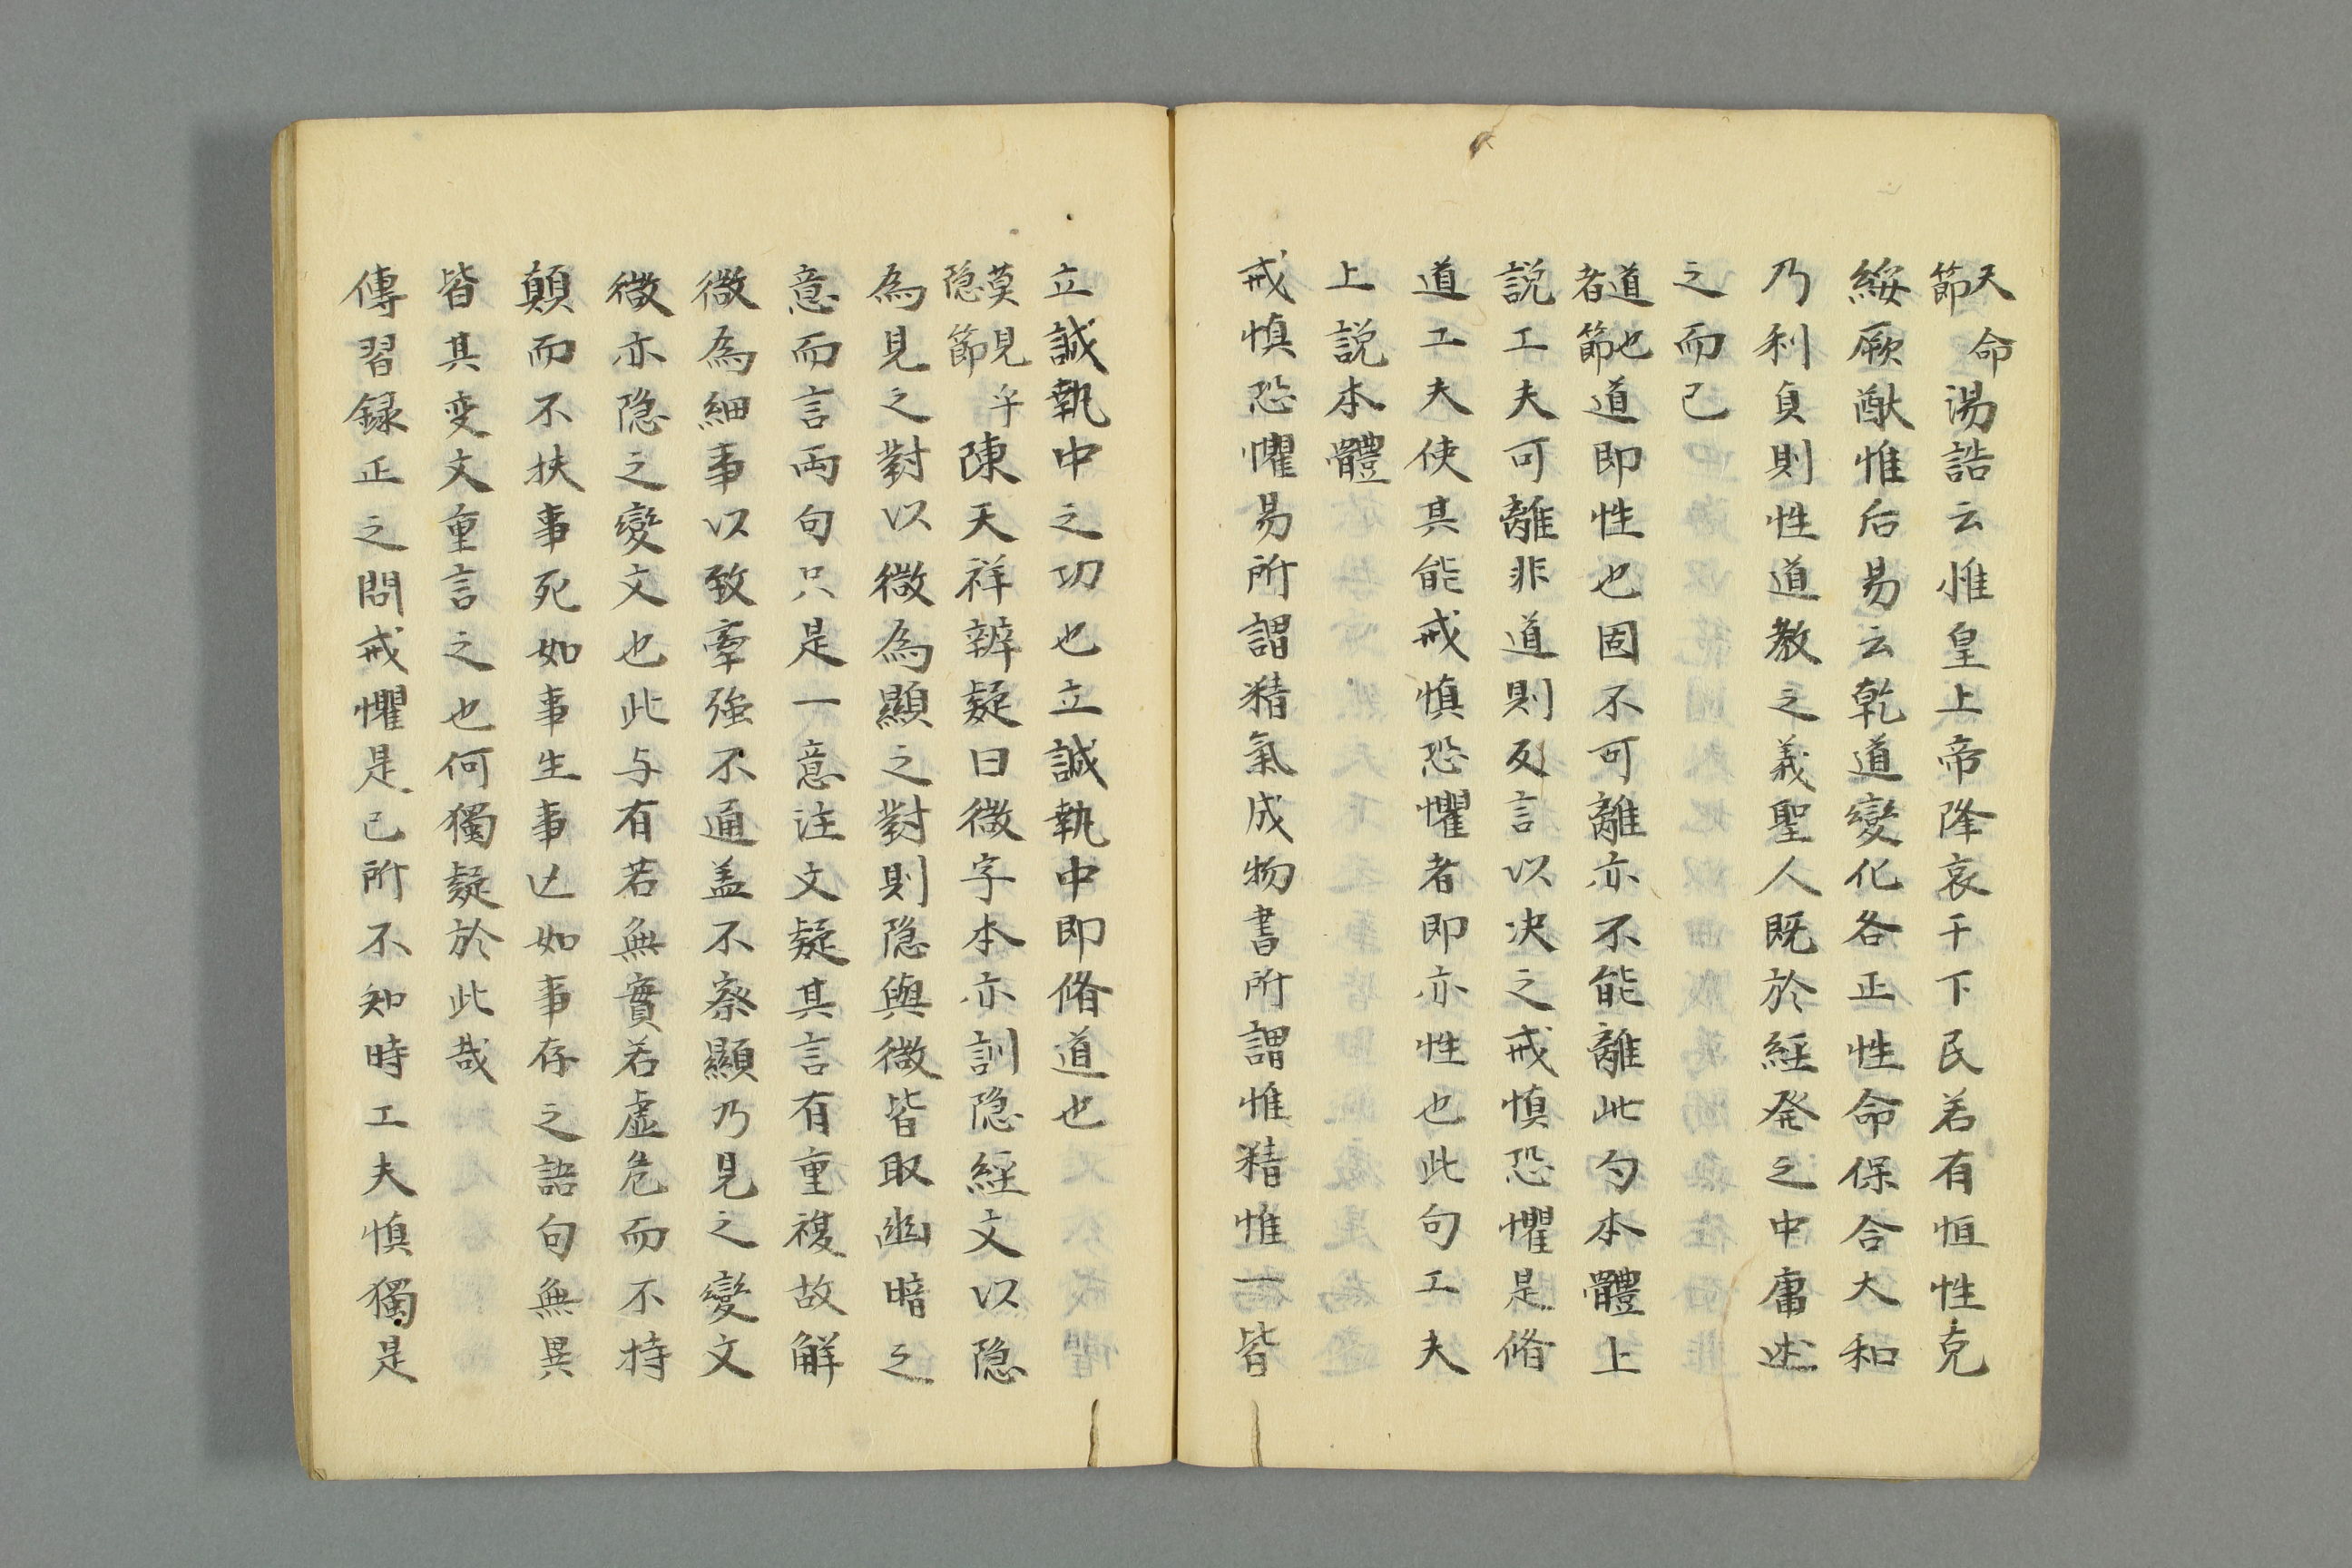 天命節湯誥云惟皇上帝降哀于下民若有恒性克
綏厥猷惟后易云乾道變化各正性命保合大和
乃利貞則性道教之義聖人既於經発之中庸述
之而已
道也者節道即性也固不可離亦不能離此勺本體上
説工夫可離非道則反言以决之戒慎恐懼是脩
道工夫使其能戒慎恐懼者即亦性也此句工夫
上説本體
戒慎恐懼易所謂精氣成物書所謂惟精惟一皆
立誠執中之功也立誠執中即脩道也
莫見乎隐節陳天祥辨疑曰微字本亦訓隐經文以隐
為見之對以微為顯之對則隐與微皆取幽暗之
意而言両句只是一意注文疑其言有重複故解
微為細事以致牽強不通盖不察顯乃見之變文
微亦隐之變文也此与有若無實若虚危而不持
顛而不扶事死如事生事亡如事存之語句無異
皆其变文重言之也何獨疑於此哉
傳習録正之問戒懼是己所不知時工夫慎獨是